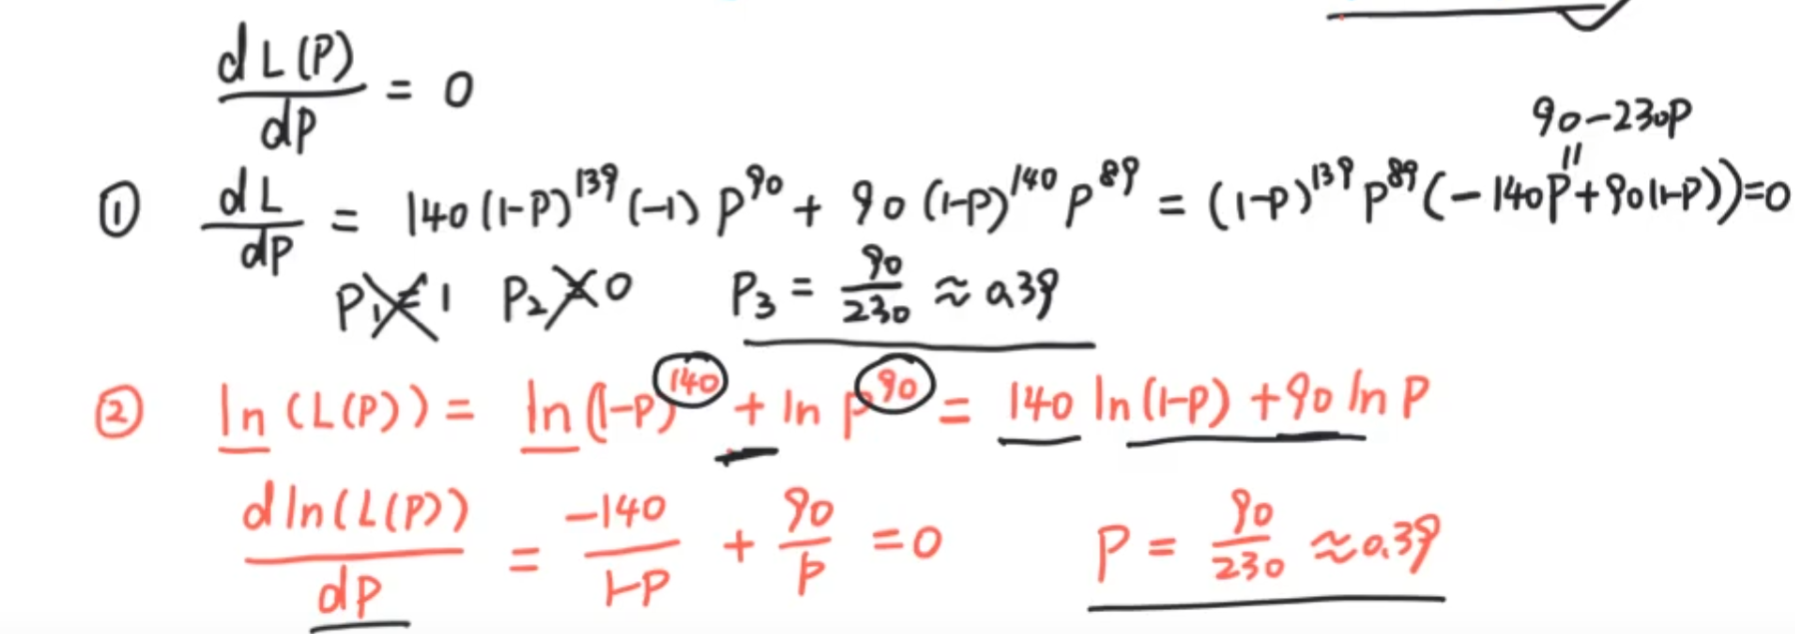 dL(P)/dP = 0
90-230P
① dL/dP = 140(1-P)^139(-1)P^90 + 90(1-P)^140 P^89 = (1-P)^139 P^89(-140P+90(1-P))=0
P₁=1 P₂=0 P₃ = 90/230 ≈ 0.39
② ln(L(P)) = ln(1-P)^140 + ln P^90 = 140 ln(1-P) + 90 ln P
d ln(L(P))/dP = -140/1-P + 90/P = 0 P = 90/230 ≈ 0.39